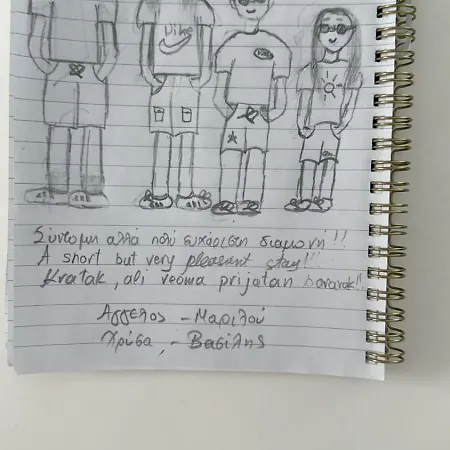 Dike
Σύντομη αλλα πολύ ευχάριστη διαμονή!!
A short but very pleasant stay!!
Kratak, ali veoma prijatan boravak!!
Αγγελος - Μαριλού
Χρύσα, - Βασίλης